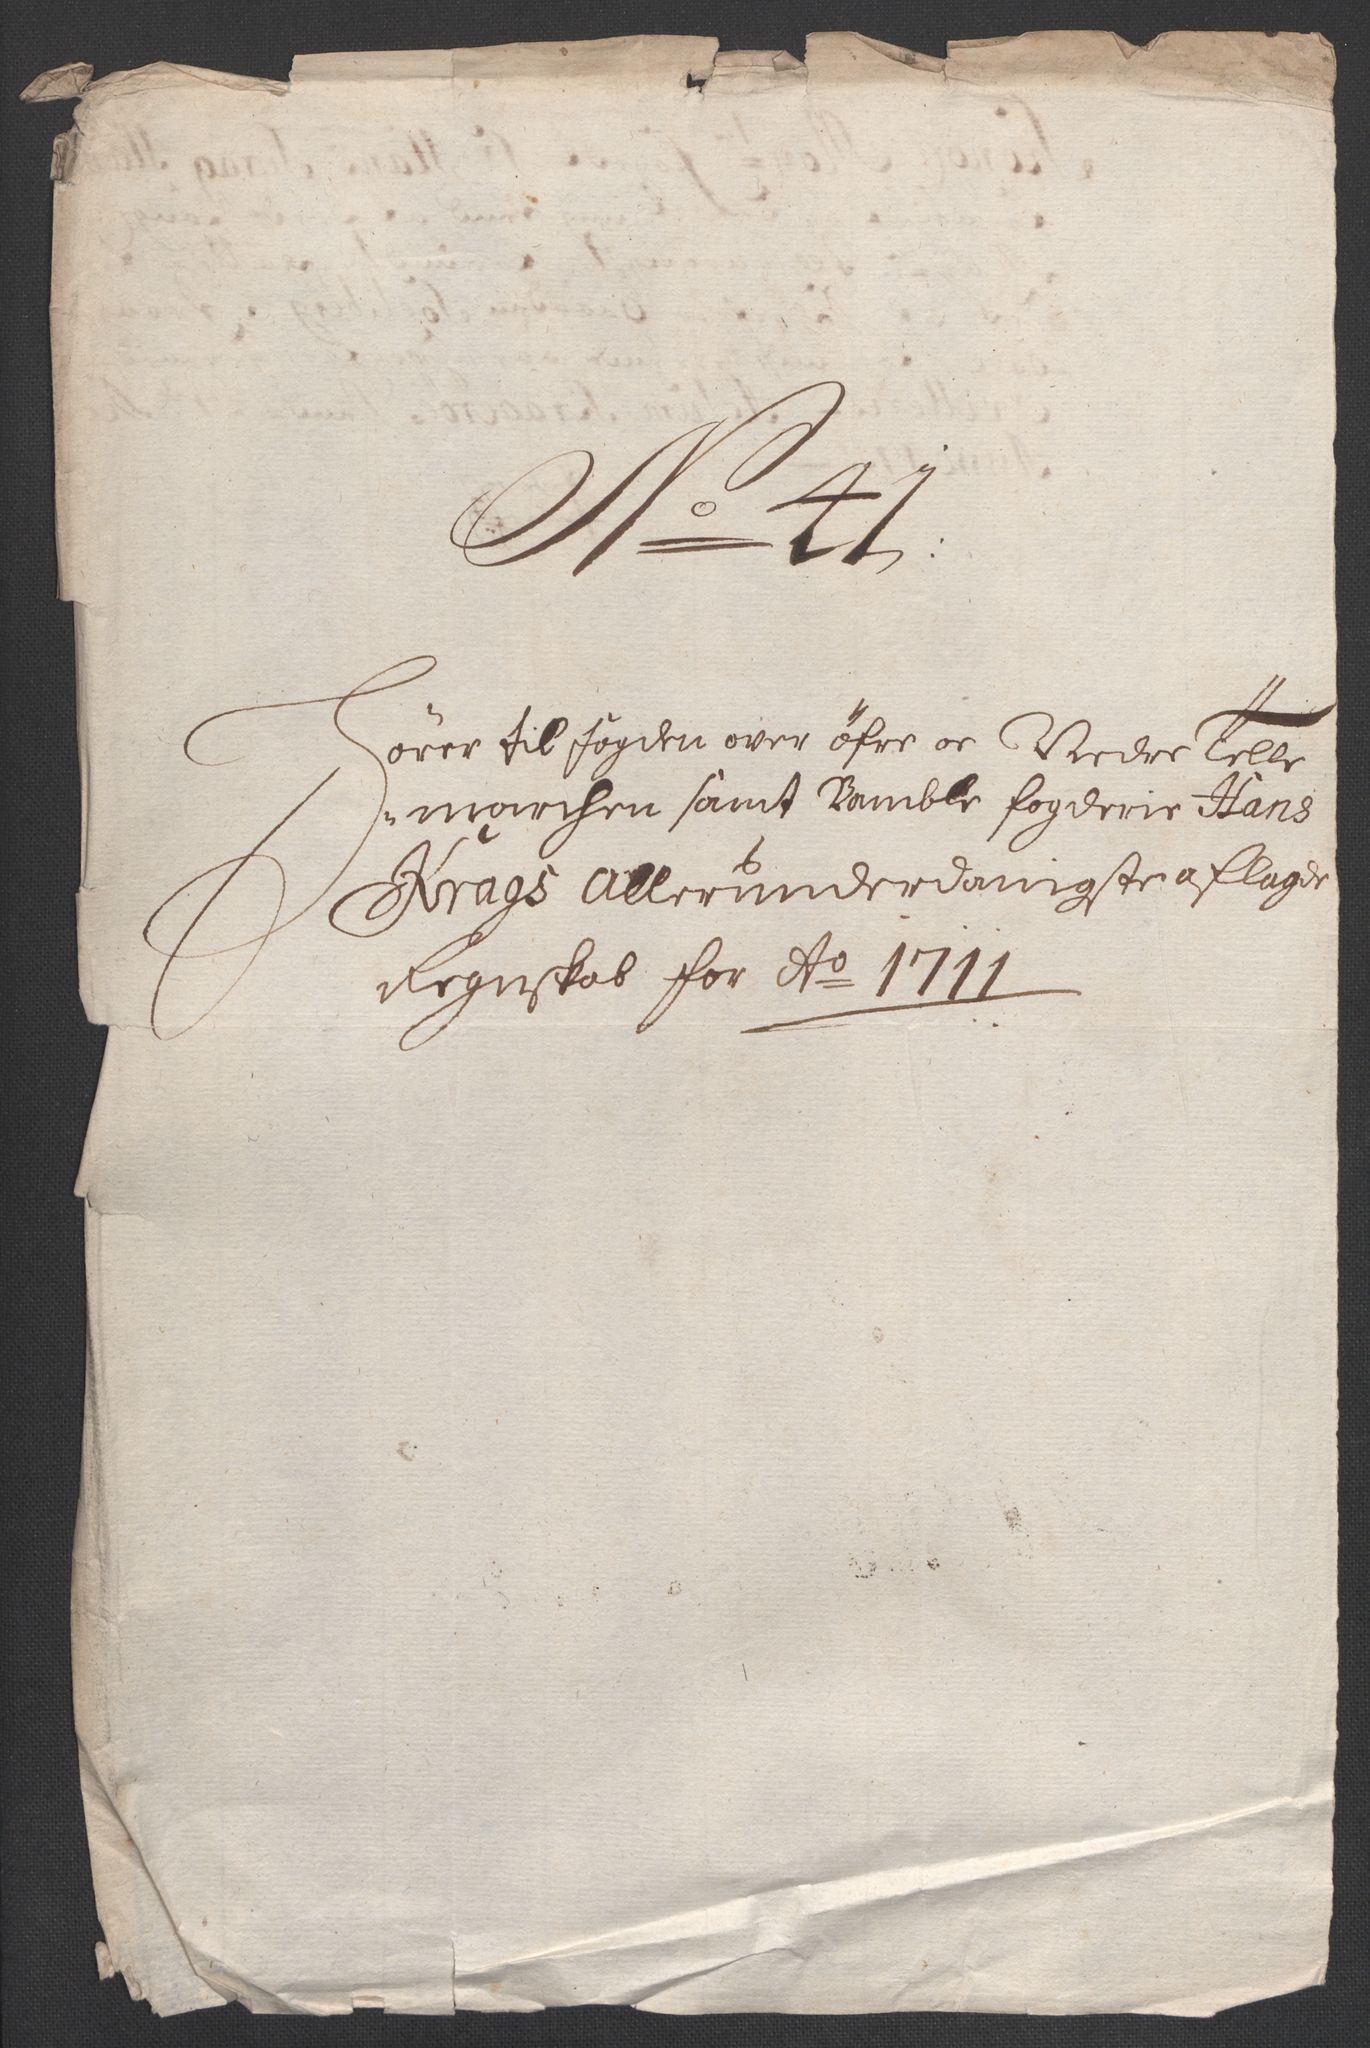 No 41:
Hörer til fogden over öfre oc Nedre Telle
marchen samt Bamble fogderie Hans
Krags Allerunderdanigste aflagde
Regnskab for Ao 1711